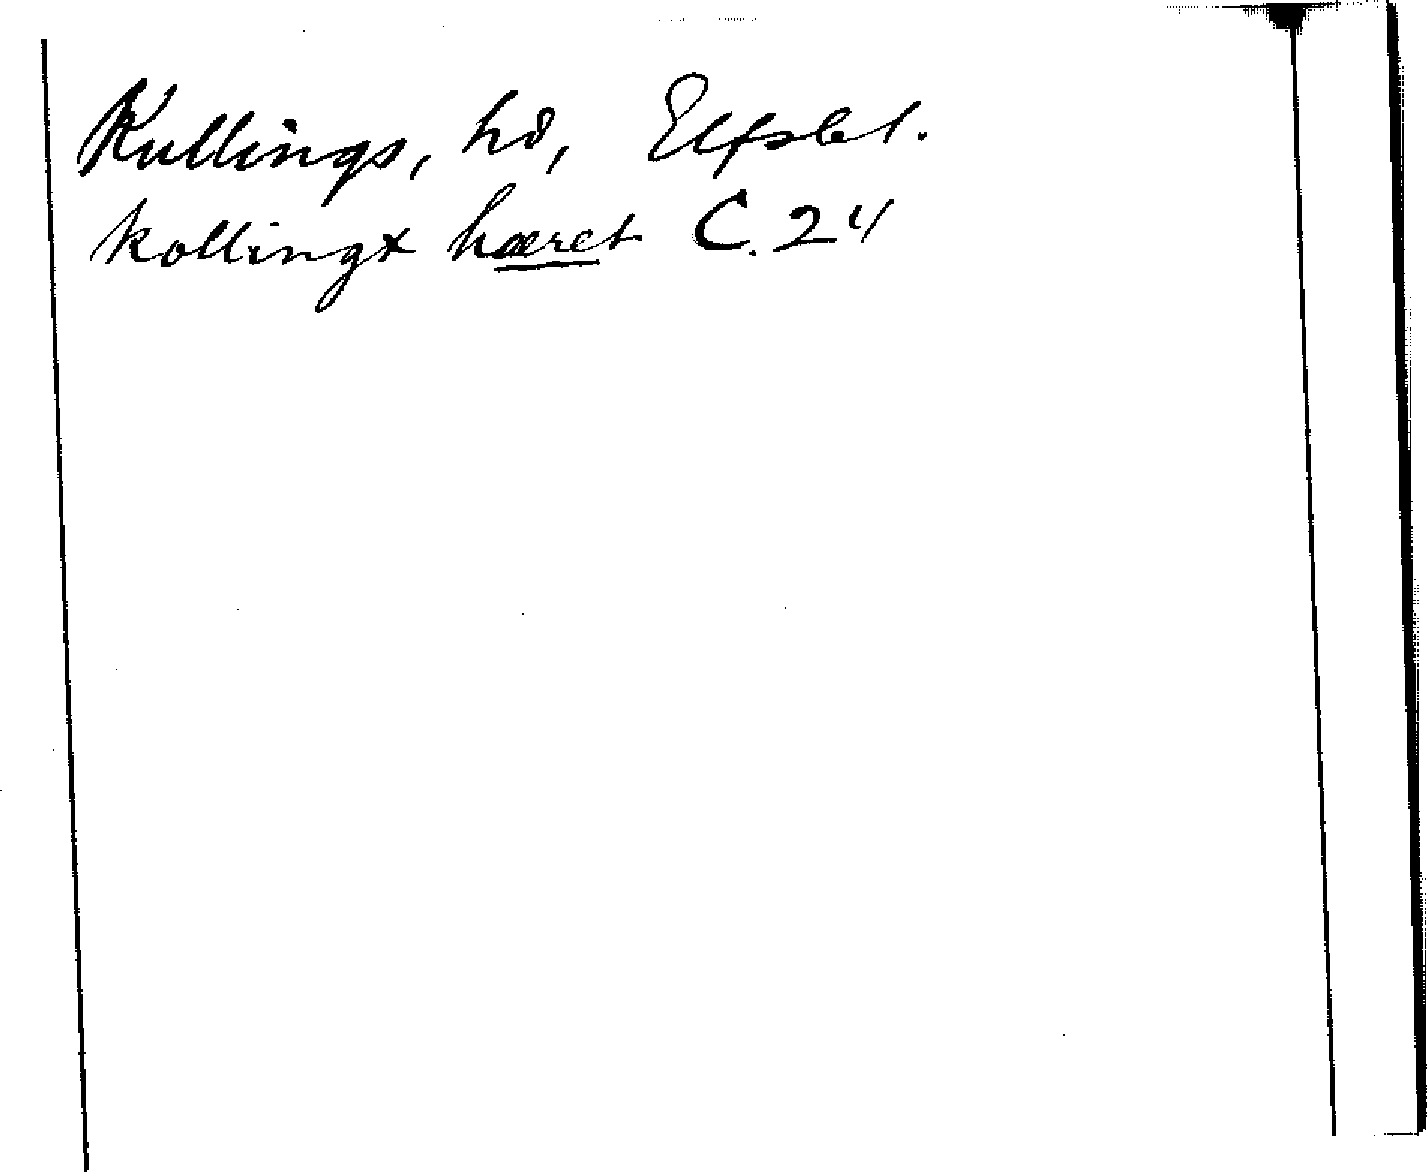 Kullings, hd, Elfsbl.
kollingx hæret C. 24